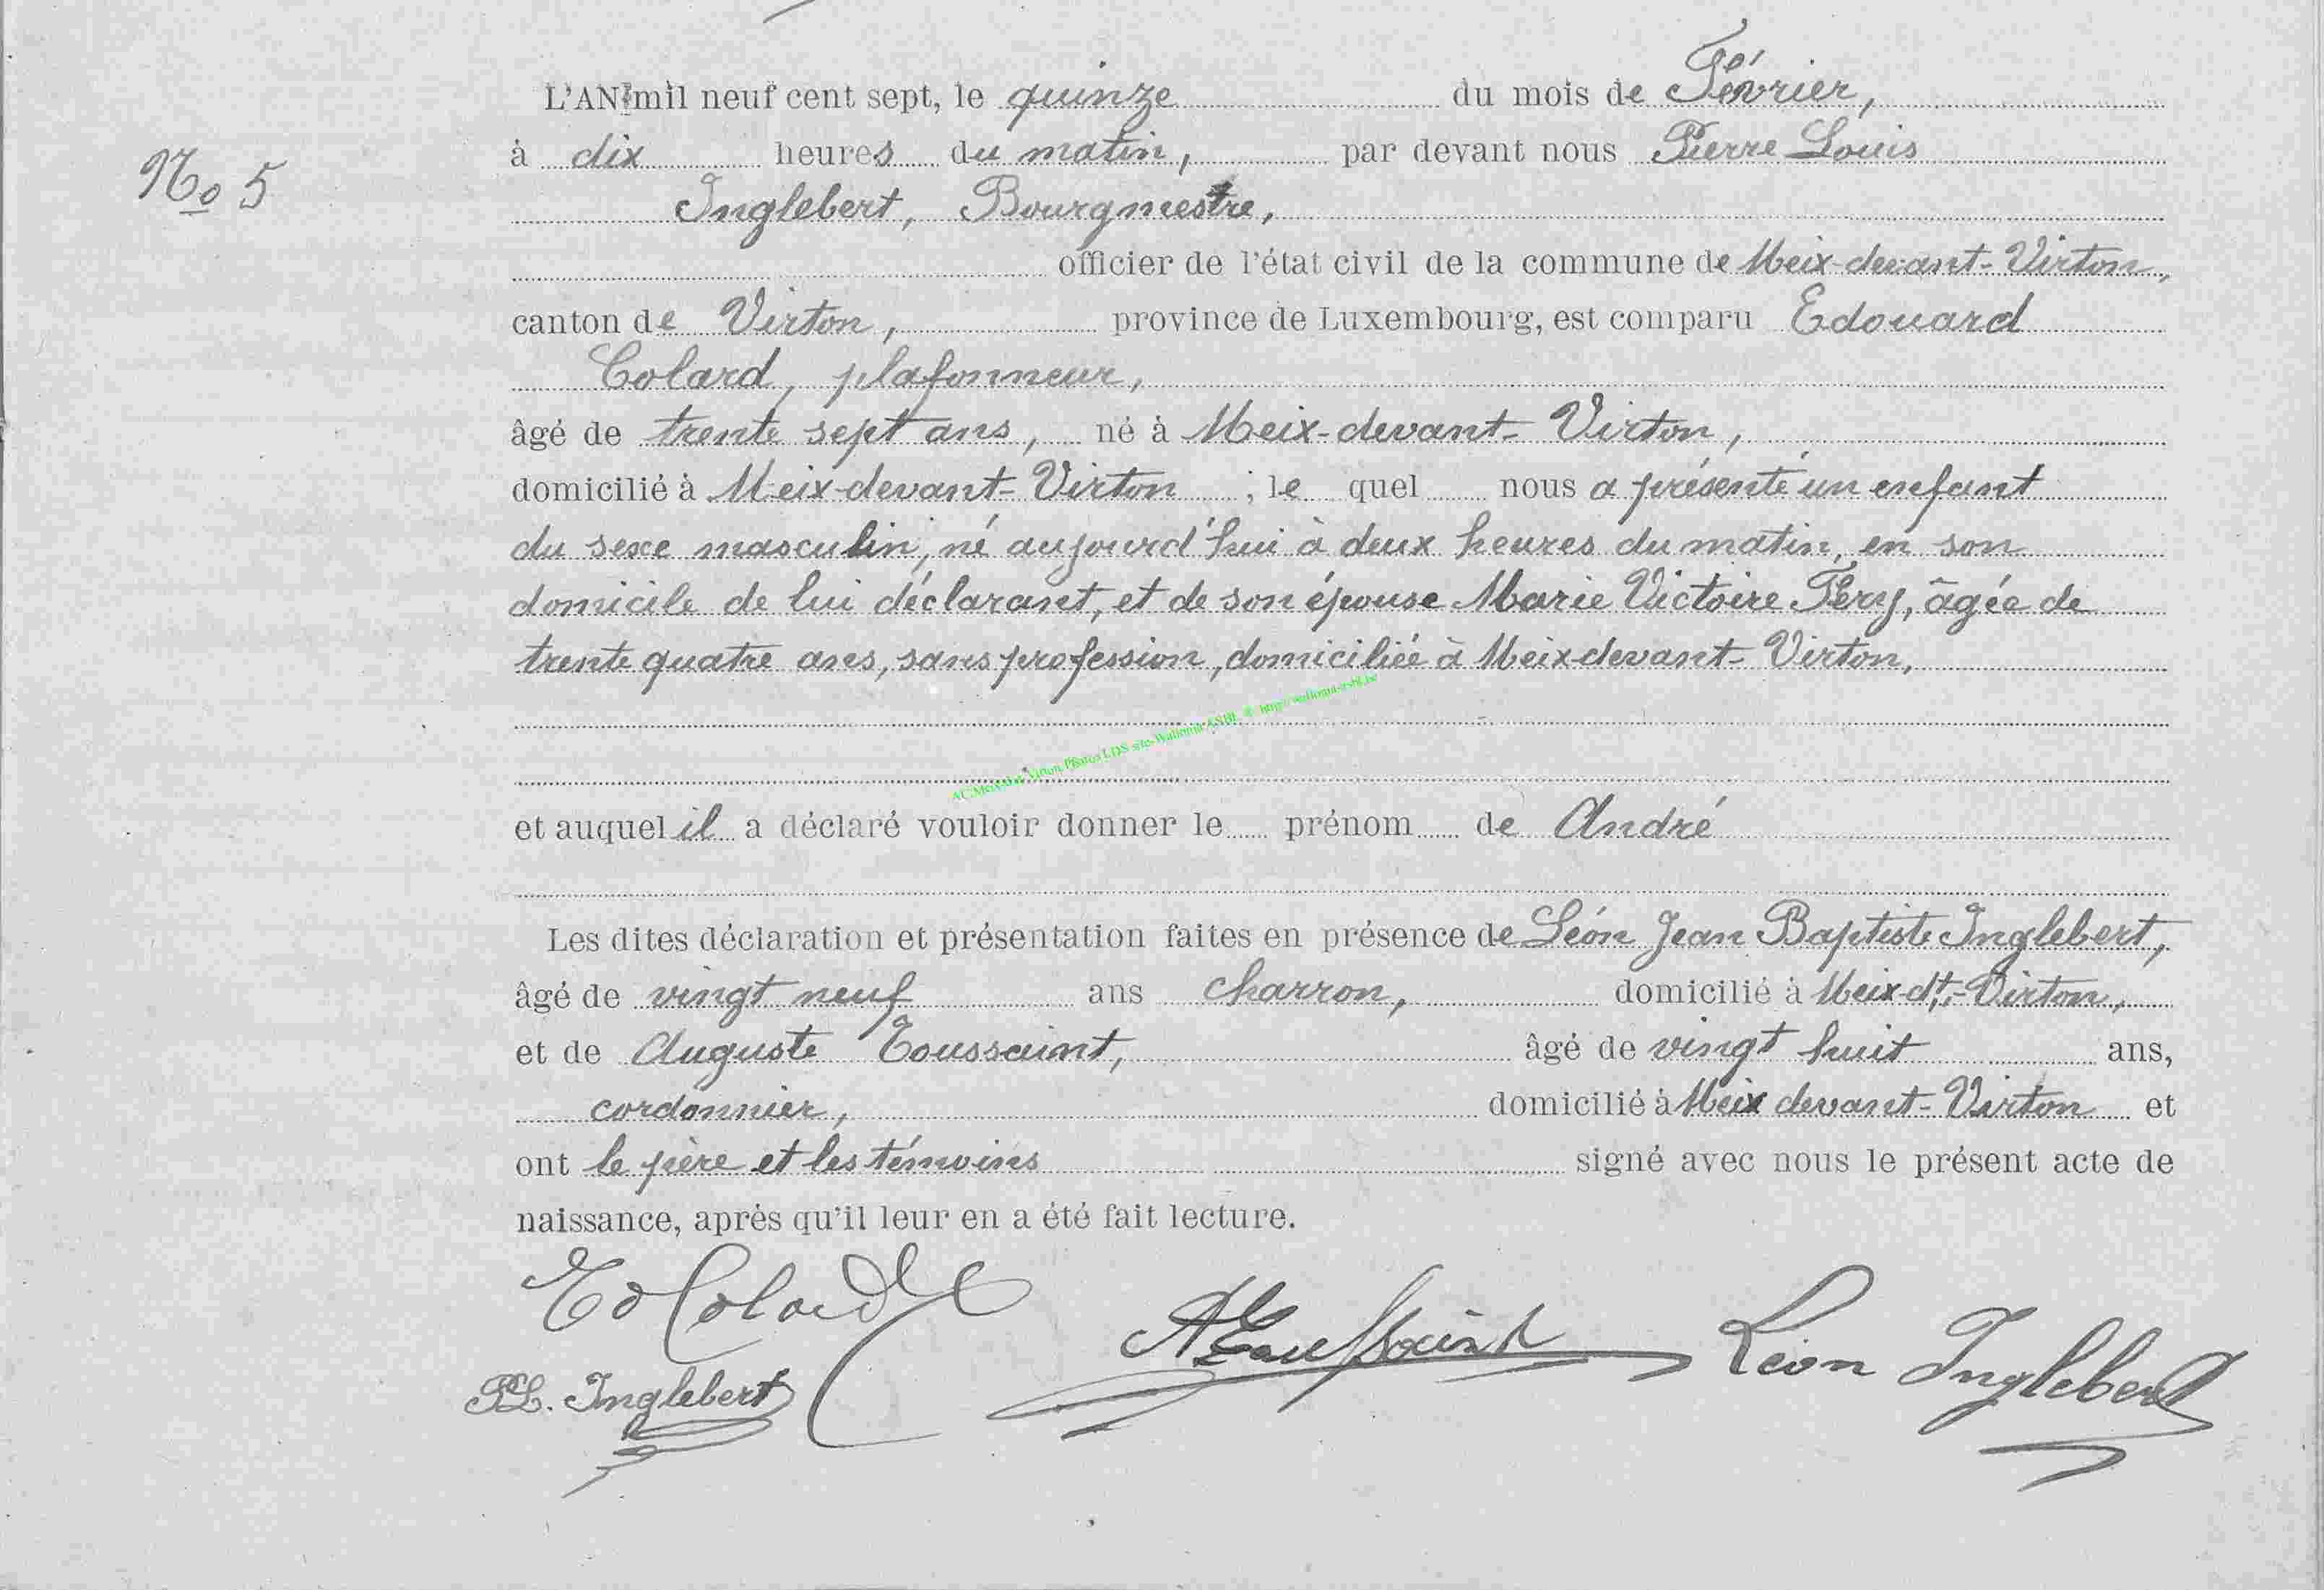 L'AN mil neuf cent sept, le quinze du mois de Février,
N° 5
à dix heures du matin, par devant nous Pierre Louis
Inglebert, Bourgmestre,
officier de l'état civil de la commune de Meix-devant-Virton,
canton de Virton, province de Luxembourg, est comparu Edouard
Colard, plafonneur,
âgé de trente sept ans, né à Meix-devant-Virton,
domicilié à Meix-devant-Virton ; le quel nous a présenté un enfant
du sexe masculin, né aujourd'hui à deux heures du matin, en son
domicile de lui déclarant, et de son épouse Marie Victoire Féry, âgée de
trente quatre ans, sans profession, domiciliée à Meix devant-Virton,
et auquel il a déclaré vouloir donner le prénom de André
Les dites déclaration et présentation faites en présence de Léon Jean Baptiste Inglebert,
âgé de vingt neuf ans charron, domicilié à Meix-dt-Virton,
et de Auguste Toussaint, âgé de vingt huit ans,
cordonnier, domicilié à Meix devant-Virton et
ont le père et les témoins signé avec nous le présent acte de
naissance, après qu'il leur en a été fait lecture.
Ed Colard
A Toussaint
Léon Inglebert
PL. Inglebert